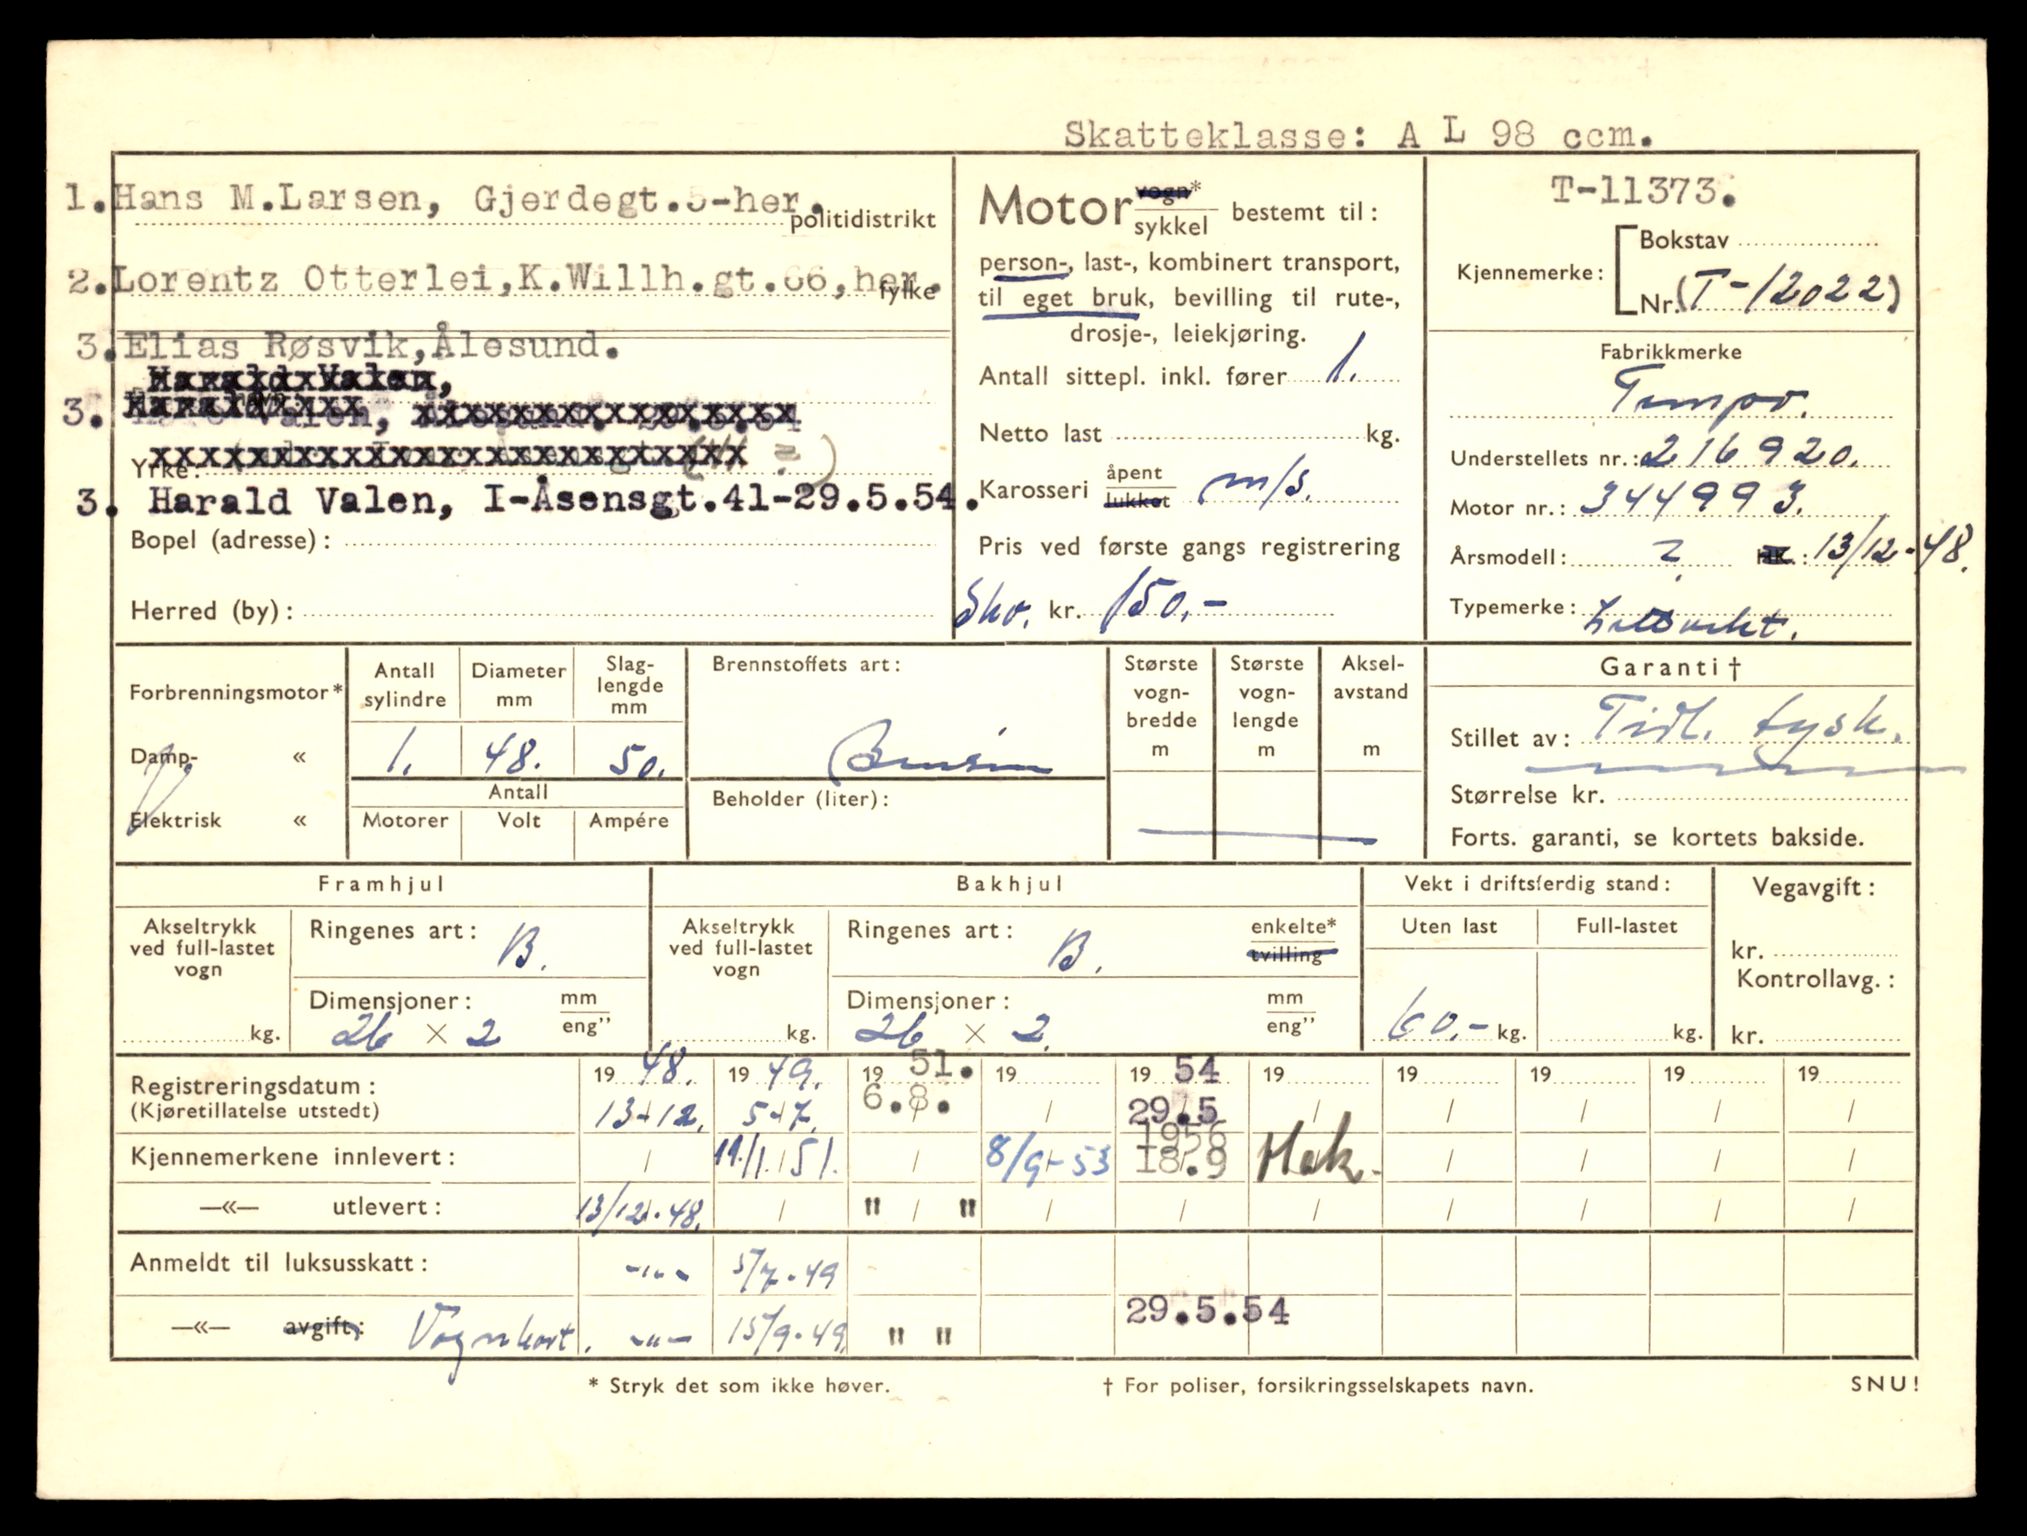 Skatteklasse: A L 98 ccm.
1.Hans M.Larsen, Gjerdegt.5-her.
politidistrikt
2.Lorentz Otterlei,K.Willh.gt.66,her.
fylke
3.Elias Røsvik,Ålesund.
Harald Valen,
3. Valen,
Yrke:
3. Harald Valen, I-Åsensgt.41-29.5.54.
Bopel (adresse):
Herred (by):
Motor vogn* sykkel bestemt til:
person-, last-, kombinert transport,
til eget bruk, bevilling til rute-,
drosje-, leiekjøring.
Antall sittepl. inkl. fører 1.
Netto last kg.
Karosseri åpent lukket m/s.
Pris ved første gangs registrering
Skv. kr. 150,-
T-11373.
Kjennemerke: Bokstav
Nr. (T-12022)
Fabrikkmerke
Tempo.
Understellets nr.: 216920.
Motor nr.: 344993.
Årsmodell: ? HK.: 13/12-48.
Typemerke: Lettvekt.
Forbrenningsmotor*
Damp- «
Elektrisk «
Antall sylindre
Diameter mm
Slag-lengde mm
1. 48. 50.
Antall
Motorer Volt Ampére
Brennstoffets art:
Bensin
Beholder (liter):
Største vogn-bredde m
Største vogn-lengde m
Aksel-avstand m
Garanti †
Stillet av: Tidl. tysk.
Størrelse kr.
Forts. garanti, se kortets bakside.
Framhjul
Akseltrykk ved full-lastet vogn
kg.
Ringenes art: B.
Dimensjoner: mm eng”
26 × 2
Bakhjul
Akseltrykk ved full-lastet vogn
kg.
Ringenes art: B. enkelte* tvilling
Dimensjoner: mm eng”
26 × 2.
Vekt i driftsferdig stand:
Uten last Full-lastet
60.- kg. kg.
Vegavgift:
kr.
Kontrollavg.:
kr.
Registreringsdatum: 19 48. 19 49. 19 51. 19 19 54 19 19 19 19 19
(Kjøretillatelse utstedt) 13-12. 5-7. 6.8. / 29.5 / / / / /
Kjennemerkene innlevert: / 19/1/51. / 8/9-53 1956 18.9 Hak. / / / /
—«— utlevert: 13/12.48. / " / " / / / / / / /
Anmeldt til luksusskatt: -"- 5/7-49
—«— avgift: Vognkort. -"- 15/9-49. " " 29.5.54
* Stryk det som ikke høver.
† For poliser, forsikringsselskapets navn.
SNU!